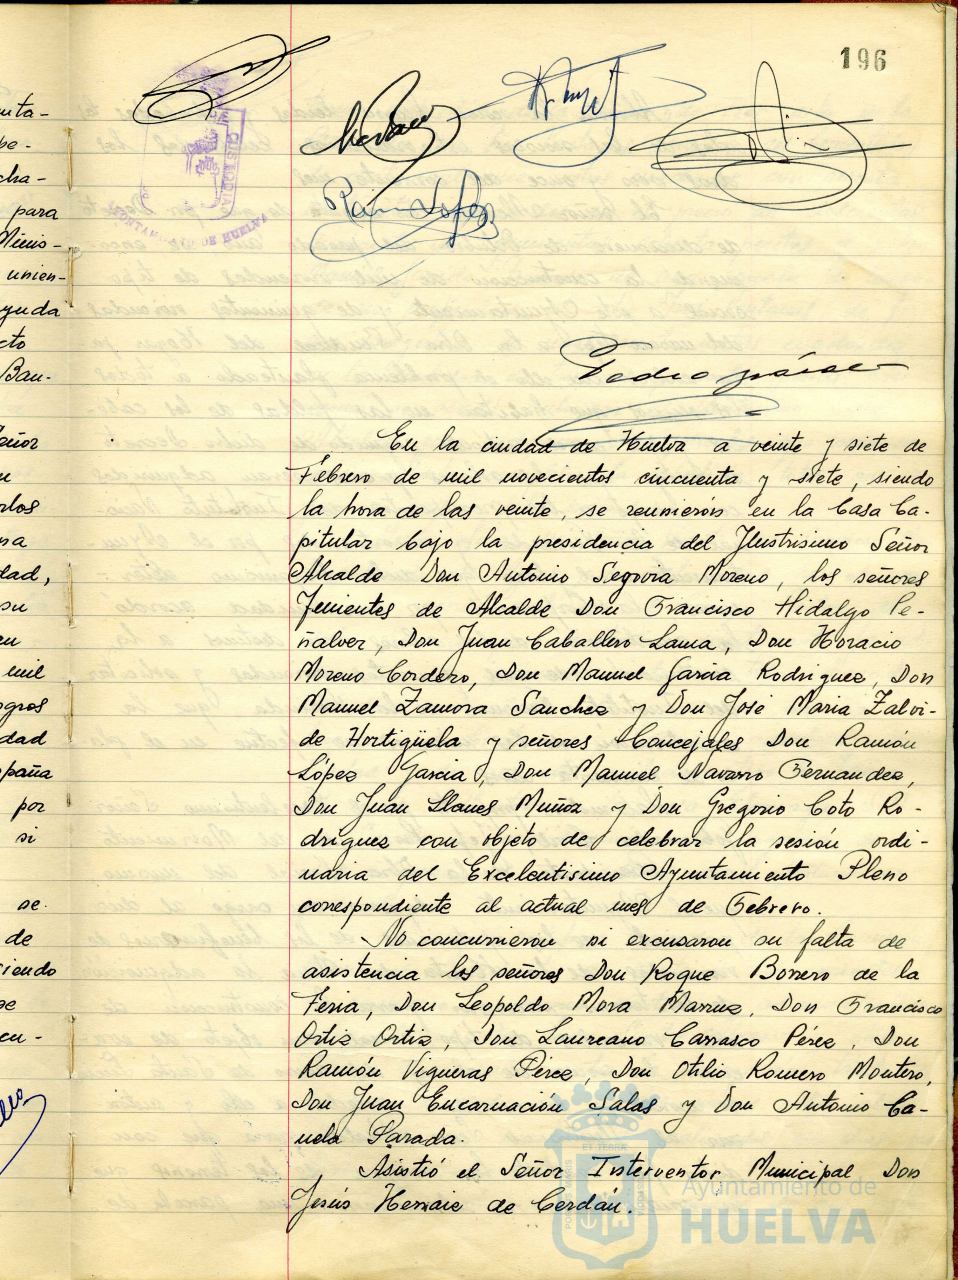 196
Ramón López
Pedro
En la ciudad de Huelva a veinte y siete de
Febrero de mil novecientos cincuenta y siete, siendo
la hora de las veinte, se reunieron en la Casa Ca-
pitular bajo la presidencia del Ilustrisimo Señor
Alcalde Don Antonio Segovia Moreno, los señores
Tenientes de Alcalde Don Francisco Hidalgo Pe-
ñalver, Don Juan Caballero Lama, Don Horacio
Moreno Cordero, Don Manuel Garcia Rodriguez, Don
Manuel Zamora Sanchez y Don José Maria Zalvi-
de Hortigüela y señores Concejales Don Ramón
López Garcia, Don Manuel Navarro Fernandez,
Don Juan Llanes Muñoz y Don Gregorio Coto Ro-
driguez con objeto de celebrar la sesión ordi-
naria del Excelentisimo Ayuntamiento Pleno
correspondiente al actual mes de Febrero.
No concurrieron ni excusaron su falta de
asistencia los señores Don Roque Borrero de la
Feria, Don Leopoldo Mora Don Francisco
Ortiz Ortiz, Don Laureano Carrasco Pérez, Don
Ramón Vigueras Pérez, Don Otilio Romero Montero,
Don Juan Encarnación Salas y Don Antonio Ca-
nela Parada.
Asistió el Señor Interventor Municipal Don
Jesús de Cerdán.
Ayuntamiento de
HUELVA
AYUNTAMIENTO DE HUELVA
para
unien-
yuda
Ban-
dad,
su
mil
dad
por
si
se.
de